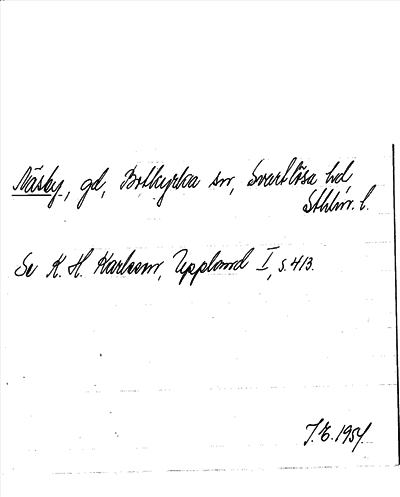 Näsby, gd, Botkyrka sn, Svartlösa hd
Sthlm. l.
Se K. H. Karlsson, Uppland I, s. 413.
J. E. 1954.